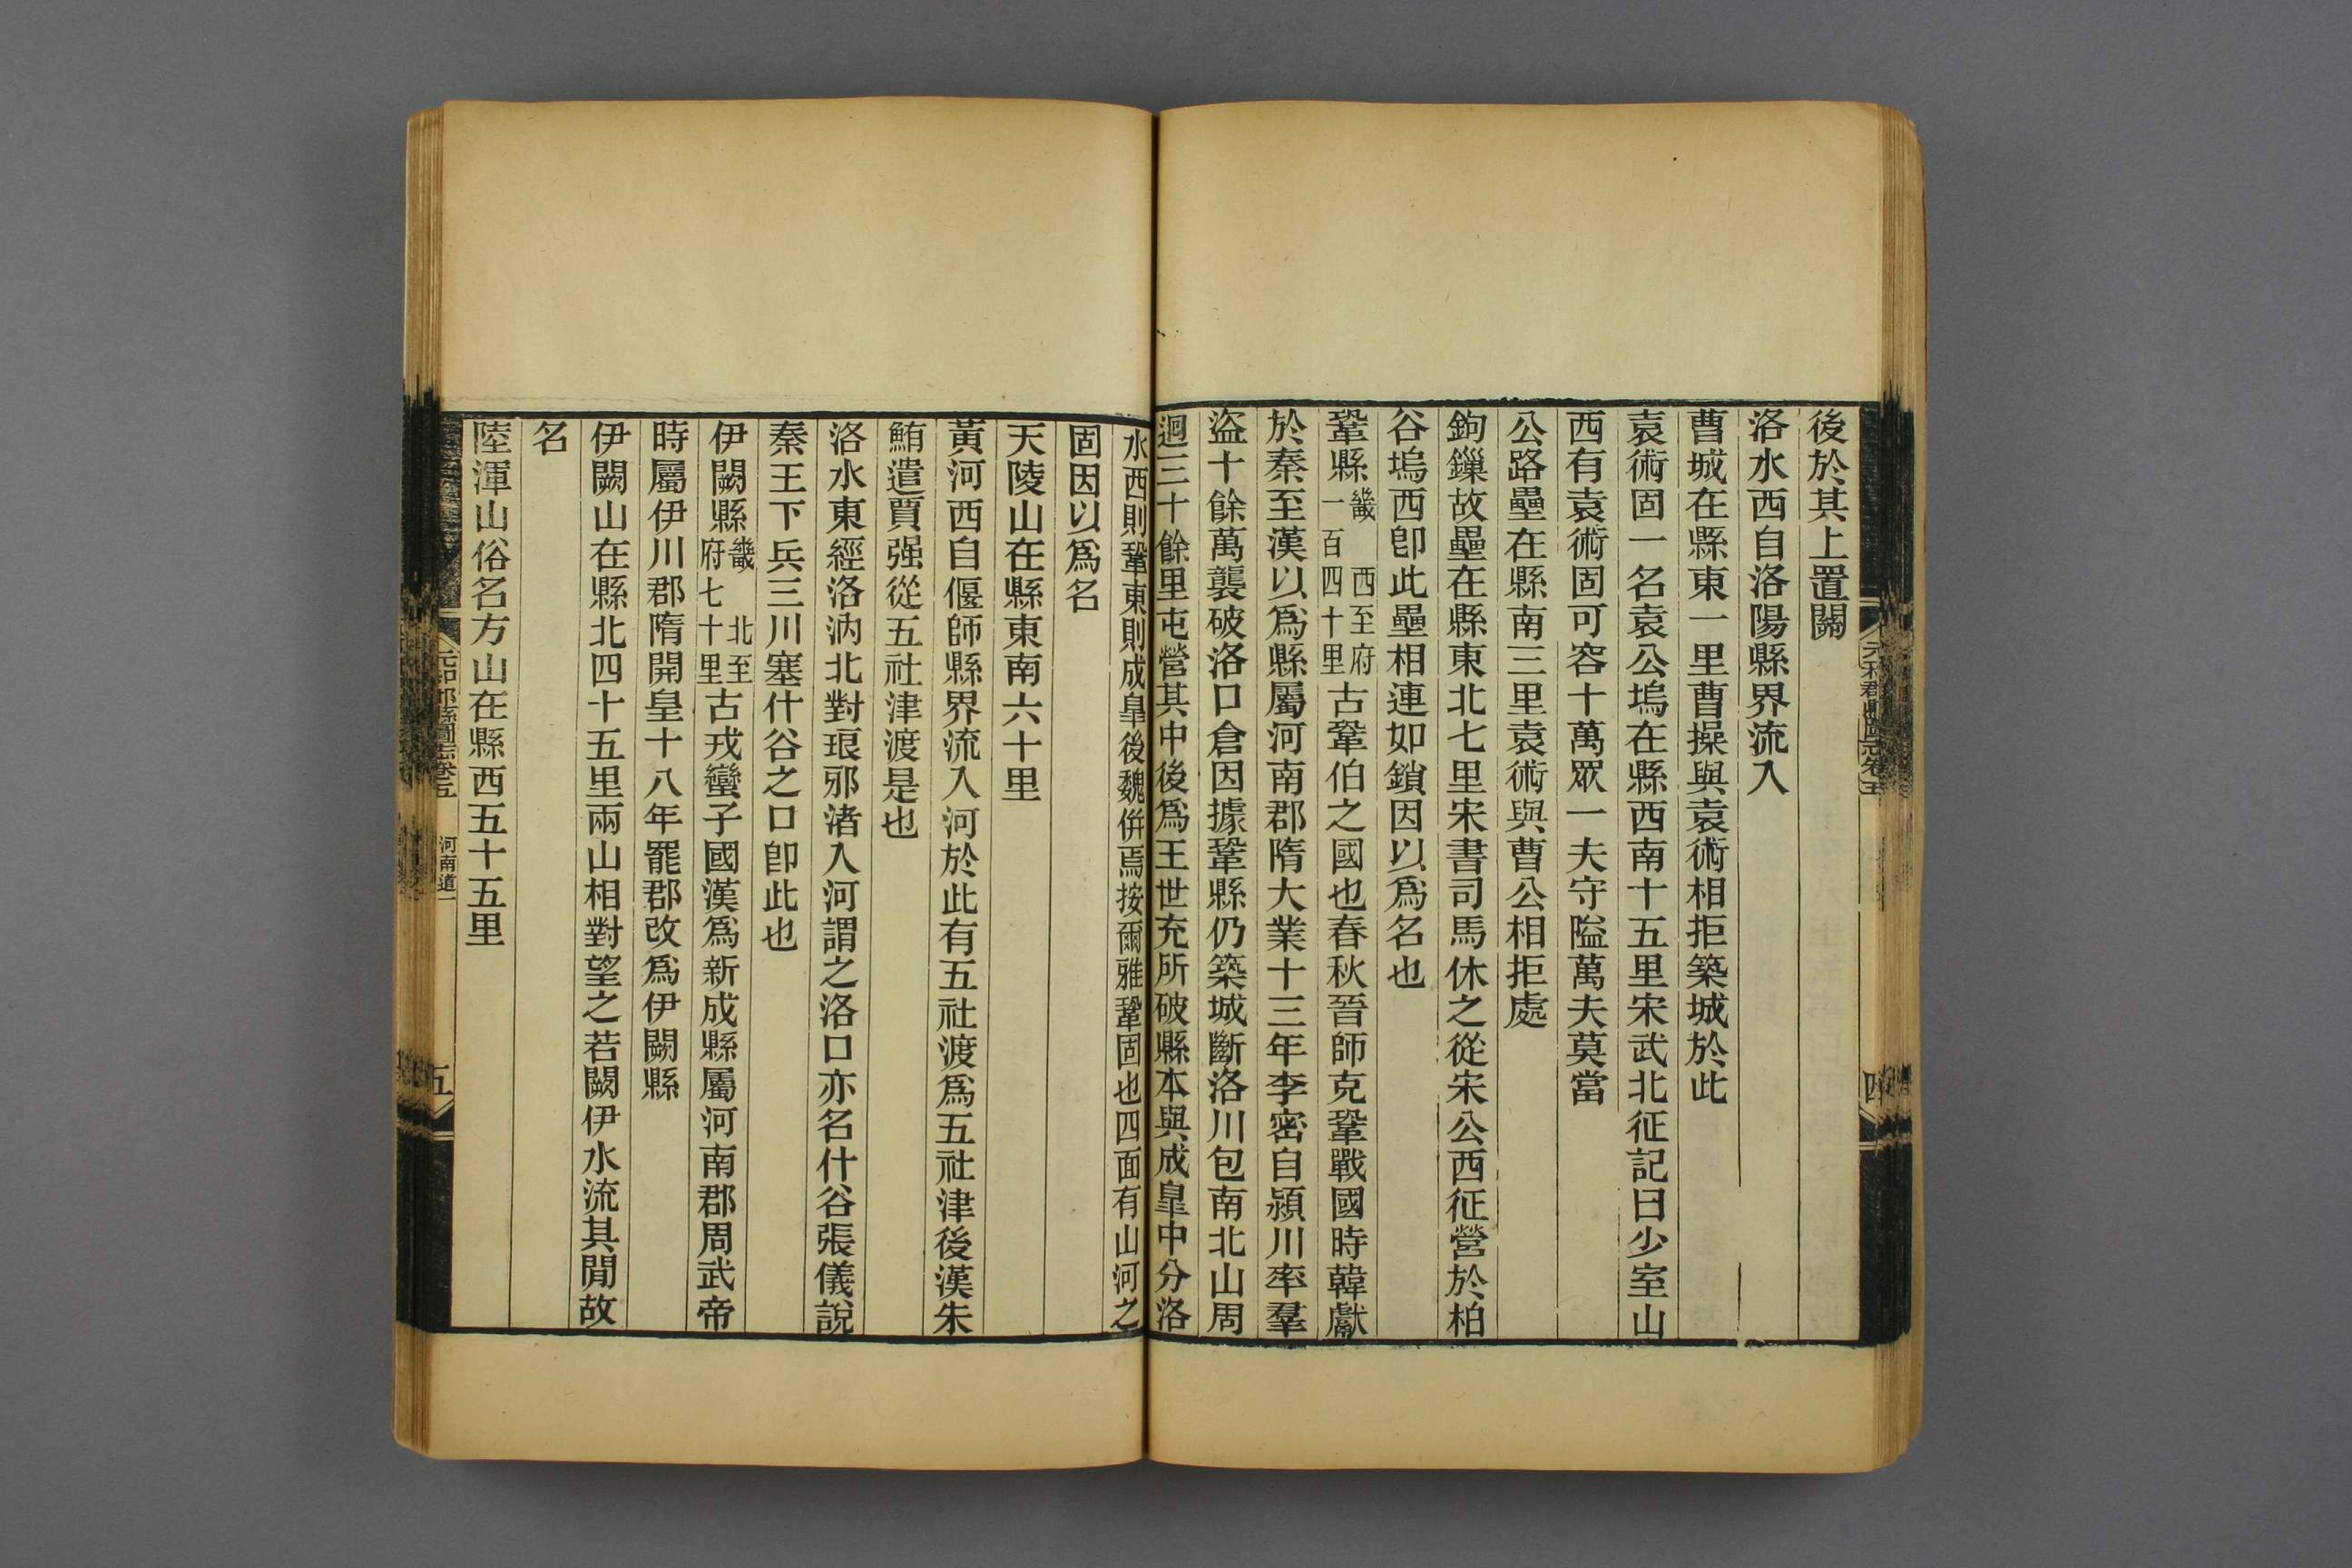 後於其上置關
洛水西自洛陽縣界流入
曹城在縣東一里曹操與袁術相拒築城於此
袁術固一名袁公塢在縣西南十五里宋武北征記曰少室山
西有袁術固可容十萬眾一夫守隘萬夫莫當
公路壘在縣南三里袁術與曹公相拒處
鉤鏁故壘在縣東北七里宋書司馬休之從宋公西征營於柏
谷塢西卽此壘相連如鎖因以爲名也
鞏縣畿 西至府一百四十里古鞏伯之國也春秋晉師克鞏戰國時韓獻
於秦至漢以爲縣屬河南郡隋大業十三年李密自潁川率羣
盜十餘萬襲破洛口倉因據鞏縣仍築城斷洛川包南北山周
迴三十餘里屯營其中後爲王世充所破縣本與成臯中分洛
水西則鞏東則成臯後魏併焉按爾雅鞏固也四面有山河之
固因以爲名
天陵山在縣東南六十里
黃河西自偃師縣界流入河於此有五社渡爲五社津後漢朱
鮪遣賈强從五社津渡是也
洛水東經洛汭北對琅邪渚入河謂之洛口亦名什谷張儀說
秦王下兵三川塞什谷之口卽此也
伊闕縣畿 北至府七十里古戎蠻子國漢爲新成縣屬河南郡周武帝
時屬伊川郡隋開皇十八年罷郡改爲伊闕縣
伊闕山在縣北四十五里兩山相對望之若闕伊水流其閒故
名
陸渾山俗名方山在縣西五十五里
元和郡縣圖志卷五
河南道一
五
元和郡縣圖志卷五
四